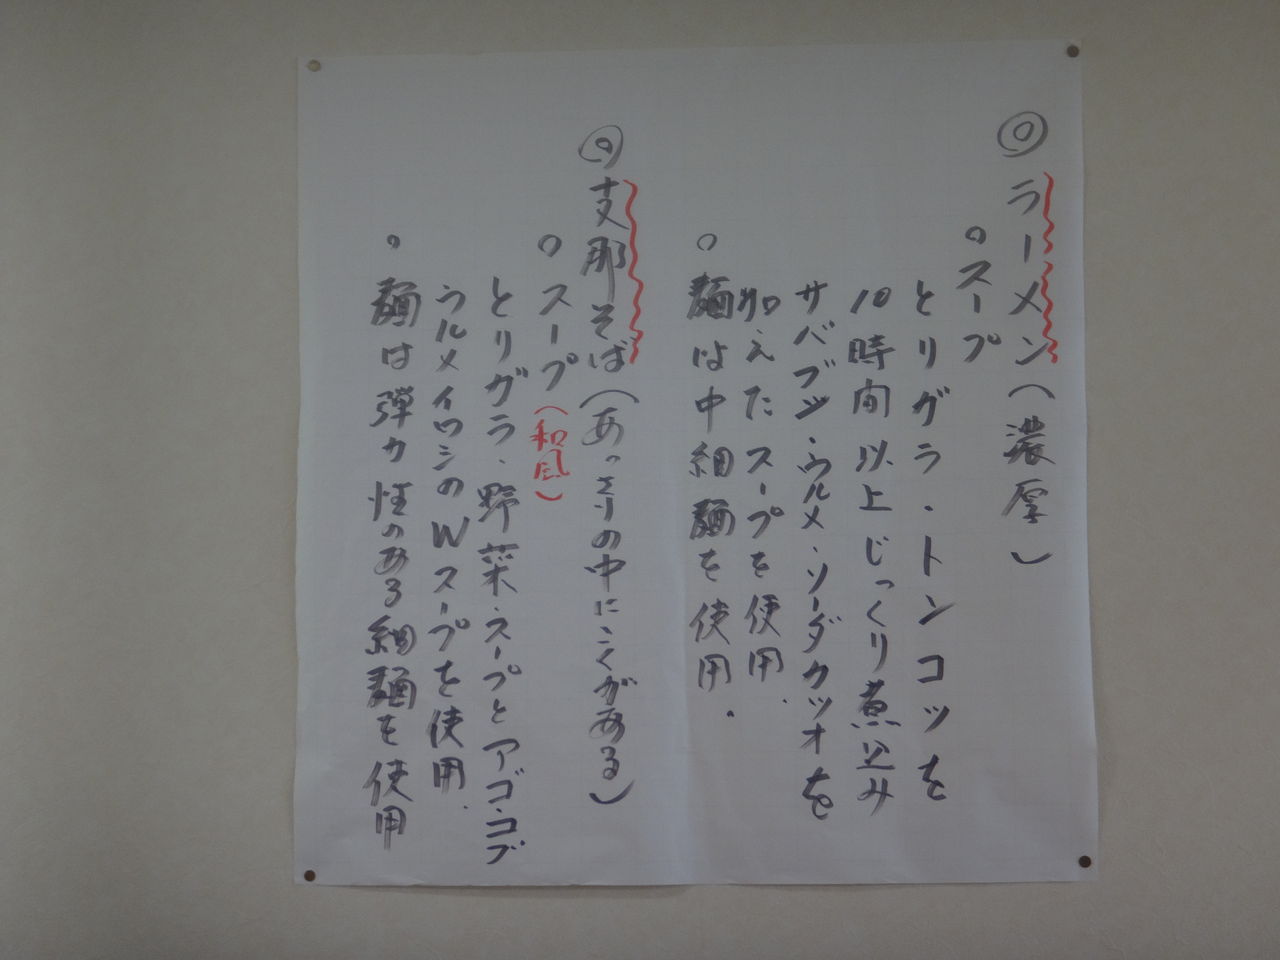 ◎ラーメン(濃厚)
○スープ
とリガラ・トンコツを
10時間以上じっくり煮込み
サバブシ・ウルメ・ソーダカツオを
加えたスープを使用.
○麺は中細麺を使用.
◎支那そば(あっさりの中にこくがある)
○スープ(和風)
とリガラ・野菜・スープとアゴ・コブ
ウルメイワシのWスープを使用.
○麺は弾力性のある細麺を使用